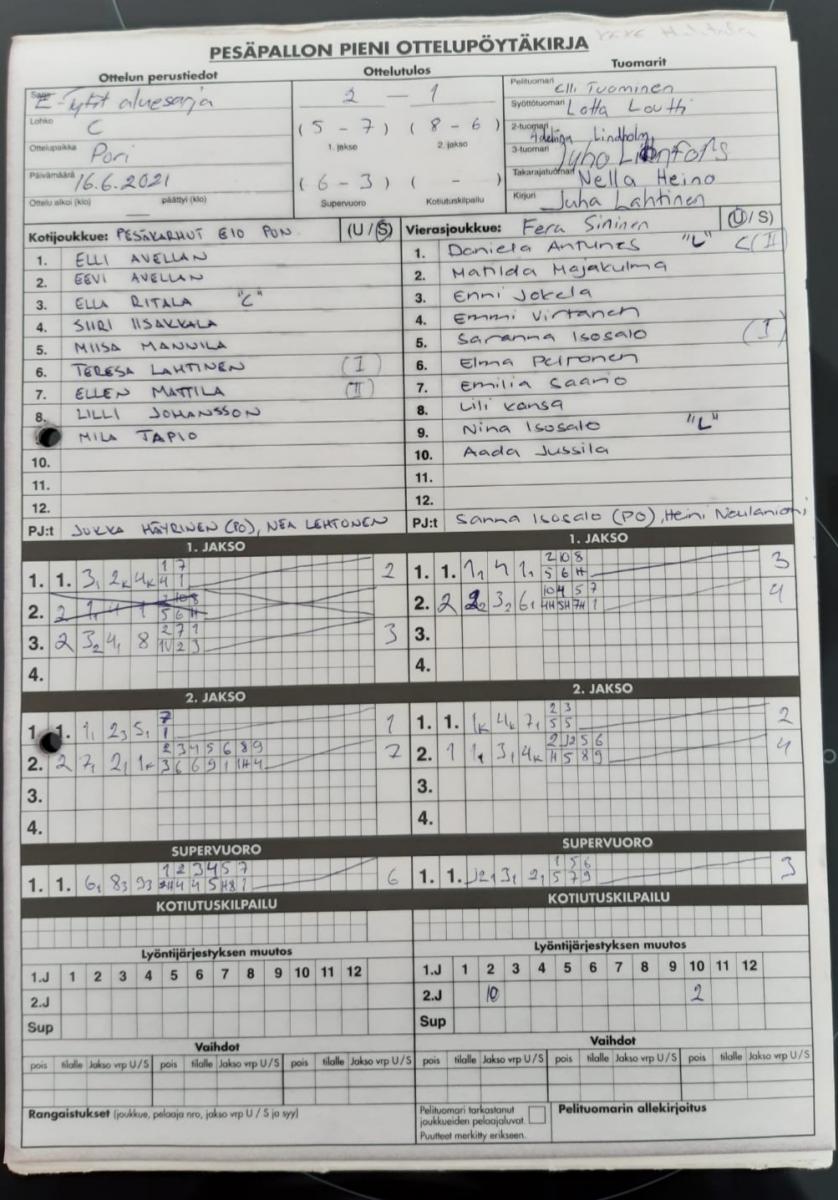 PESÄPALLON PIENI OTTELUPÖYTÄKIRJA
Ottelun perustiedot
Ottelutulos
Tuomarit
Sarja E-tytöt aluesarja
Lohko C
Ottelupaikka Pori
Päivämäärä 16.6.2021
Ottelu alkoi (klo) päättyi (klo)
2 - 1
(5 - 7) (8 - 6)
1. jakso 2. jakso
(6 - 3) ( - )
Supervuoro Kotiutuskilpailu
Pelituomari Elli Tuominen
Syöttötuomari Lotta Loutti
2-tuomari Adelina Lindholm
3-tuomari Juho
Takarajatuomari Nella Heino
Kirjuri Juha Lahtinen
Kotijoukkue: PESÄKARHUT E10 PON (U/S)
1. ELLI AVELLAN
2. EEVI AVELLAN
3. ELLA RITALA "C"
4. SIIRI IISAKKALA
5. MIISA MANNILA
6. TERESA LAHTINEN (I)
7. ELLEN MATTILA (II)
8. LILLI JOHANSSON
MILA TAPIO
10.
11.
12.
PJ:t JUKKA HÄYRINEN (PO), NEA LEHTONEN
Vierasjoukkue: Fera Sininen (U/S)
1. Daniela Antunes "L" C(II)
2. Matilda Majakulma
3. Enni Jokela
4. Emmi Virtanen
5. Saranna Isosalo (I)
6. Elma Peltonen
7. Emilia Saario
8. Lili Kansa
9. Nina Isosalo "L"
10. Aada Jussila
11.
12.
PJ:t Sanna Isosalo (PO), Heini Neulaniemi
1. JAKSO
1. 1. 3₁ 2ₖ 4ₖ 2
2.
3. 2 3₂ 4₁ 8 3
4.
1. JAKSO
1. 1. 1₁ 4 1₁ 3
2. 2 2₂ 3₂ 6₁ 4
3.
4.
2. JAKSO
1. 1. 1₁ 2₃ 5₁ 1
2. 2 7₁ 2₁ 1ₖ 7
3.
4.
2. JAKSO
1. 1. 1ₖ 4ₖ 7₁ 2
2. 1 1₁ 3₁ 4ₖ 4
3.
4.
SUPERVUORO
1. 1. 6₁ 8₃ 9₃ 6
SUPERVUORO
1. 1. 3₁ 2₁ 3
KOTIUTUSKILPAILU
KOTIUTUSKILPAILU
Lyöntijärjestyksen muutos
1.J 1 2 3 4 5 6 7 8 9 10 11 12
2.J
Sup
Lyöntijärjestyksen muutos
1.J 1 2 3 4 5 6 7 8 9 10 11 12
2.J 10 2
Sup
Vaihdot
pois tilalle Jakso vrp U/S pois tilalle Jakso vrp U/S pois tilalle Jakso vrp U/S
Vaihdot
pois tilalle Jakso vrp U/S pois tilalle Jakso vrp U/S pois tilalle Jakso vrp U/S
Rangaistukset (joukkue, pelaaja nro, jakso vrp U / S ja syy)
Pelituomari tarkastanut
joukkueiden pelaajaluvat.
Puutteet merkitty erikseen.
Pelituomarin allekirjoitus